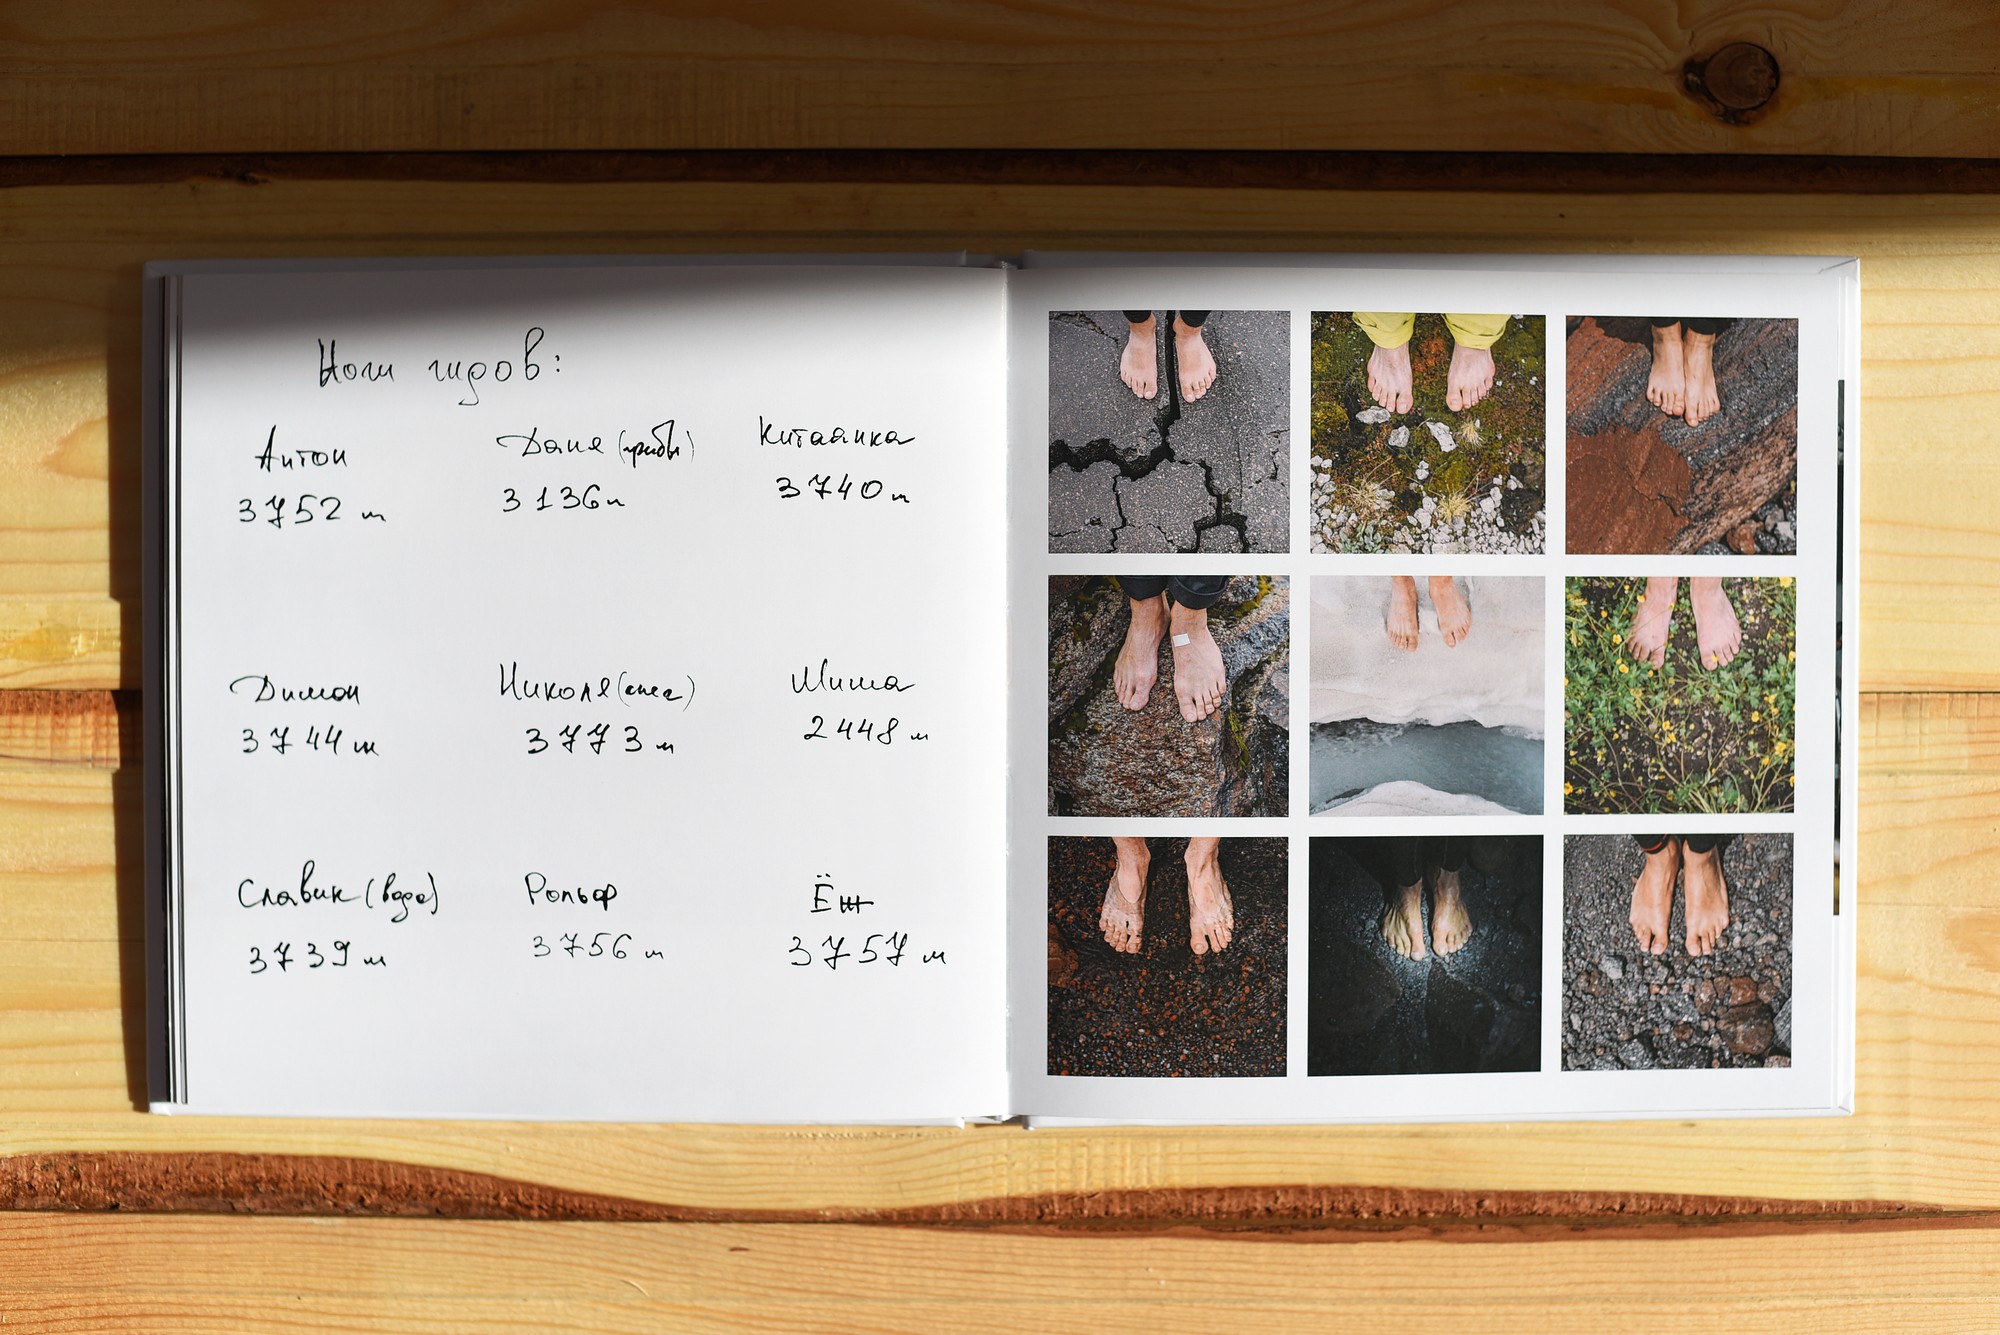 Ноги гидов:
Антон Даня (грибы) Китаянка
3752 м 3136м 3740 м
Димон Николя (снег) Миша
3744 м 3773 м 2448 м
Славик (вода) Рольф Ёж
3739 м 3756 м 3757 м